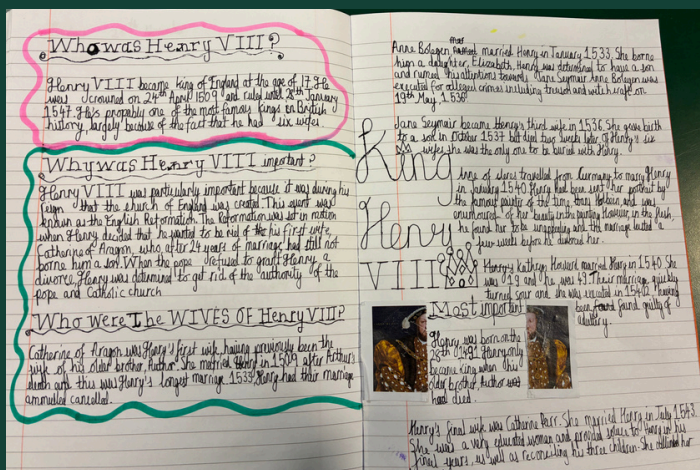 Who was Henry VIII?
Henry VIII became king of England at the age of 17. He
was crowned on 24th April 1509 and ruled until 28th January
1547. He's propably one of the most famous kings in British
history largely because of the fact that he had six wifes
Why was Henry VIII important?
Henry VIII was particularly important because it was during his
reign that the church of England was created. This event was
known as the English Reformation. The Reformation was set in motion
when Henry decided that he wanted to be rid of the his first wife,
Catherine of Aragon, who, after 24 years of marriage had still not
borne him a son. When the pope refused to grant Henry a
divorce, Henry was determined to get rid of the authority of the
pope and Catholic church
Who Were The WIVES OF Henry VIII?
Catherine of Aragon was Henry's first wife, having previously been the
wife of his older brother, Author. She married Henry in 1509 after Arthur's
death and this was Henry's longest marriage 1533 Henry had their marriage
annulled cancelled.
Anne Boleyen married Henry in January 1533. She borne
high a daughter, Elizabeth. Henry was determined to have a son
and turned his attentions towards Jane Seymair Anne Bolegen was
executed for alleged crimes including treason and witchcraft on
19th May, 1536
Jane Seymair became Henry's third wife in 1536. She gave birth
to a son in October 1537 but died two weeks later. Of Henry's six
wifes she was the only one to be buried with Henry
King
Henry
VIII
Anne of cleves travelled from Germany to marry Henry
in January 1540. Henry had been sent her portrait by
the famous painter of the time Hans Holbein and was
enamoured of her beauty in the painting However, in the flesh,
he found her to be unappealing and the marriage lasted a
few weeks before he divorced her.
Henry's Kathryn Howard married Henry in 1540. She
was 19 and he was 49. Their marriage quickly
turned sour and she was executed in 1542 having
been found guilty of
adultery.
Most important
Henry was born on the
28th 1491 Henry only
became king when his
older brother, Author
had died.
Henry's final wife was Catherine Parr. She married Henry in July 1543.
She was a very educated women and provided solace to Henry in his
final years, as well as reconciling his three children. She outlived her